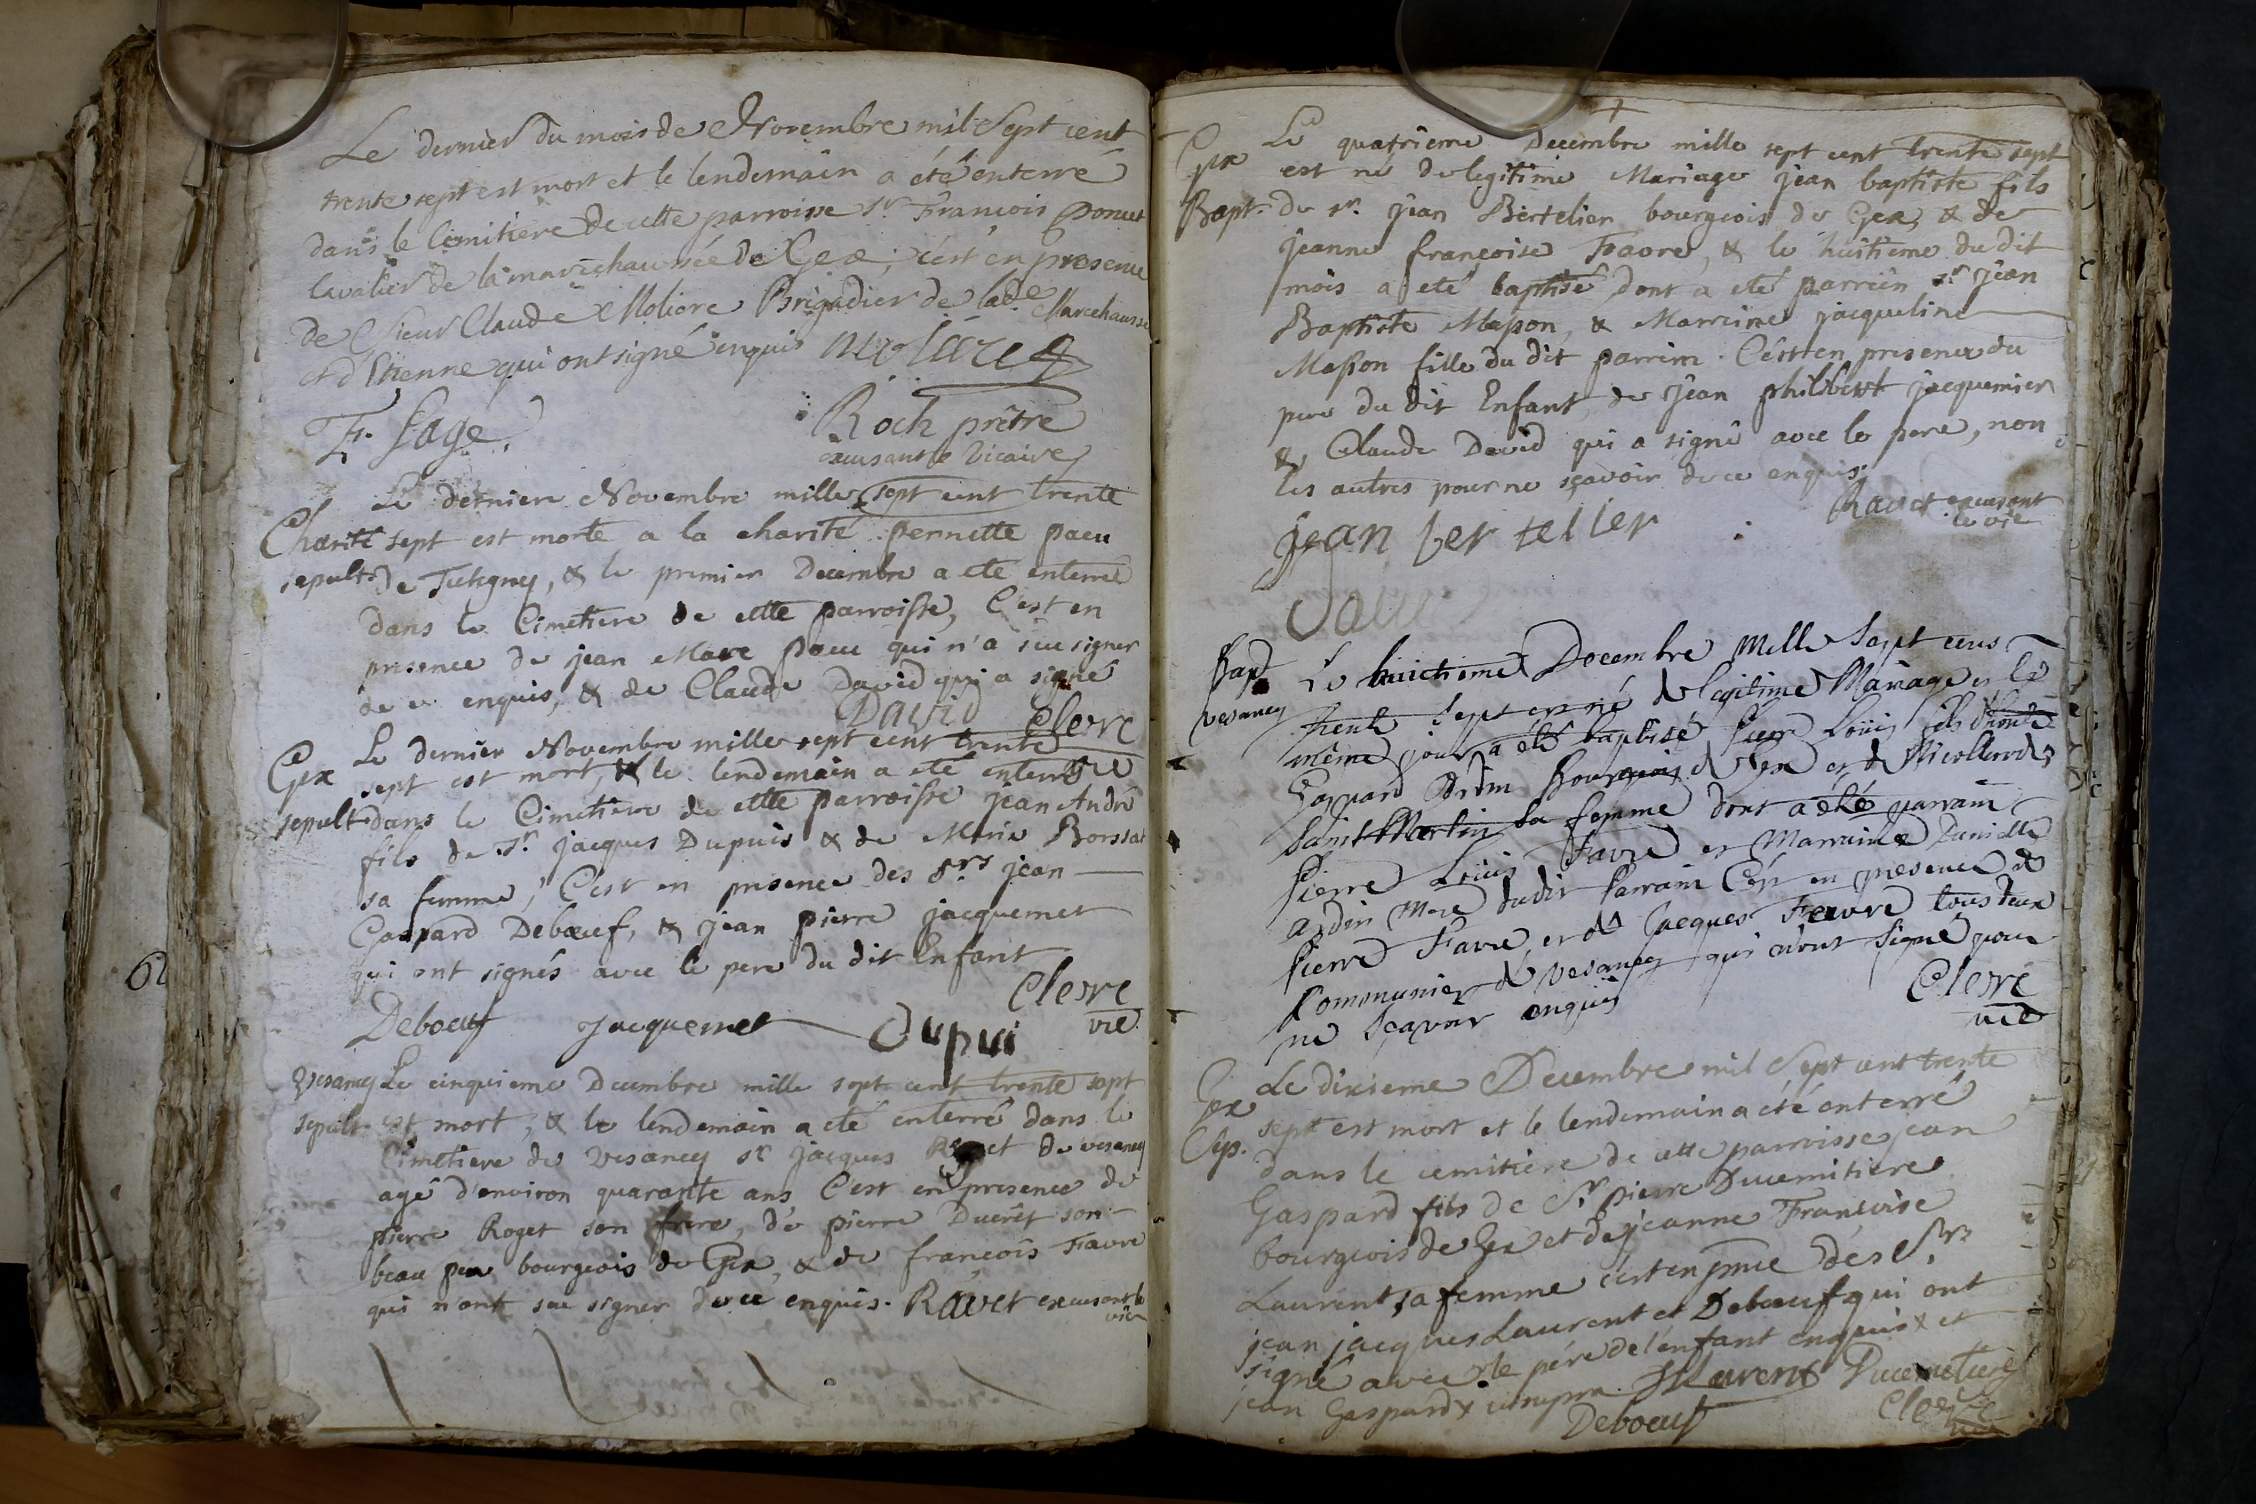 Le dernier du mois de Novembre mil Sept cent
trente sept est mort et le lendemain a été enterré
dans le Cemitiere de cette parroisse Sr Francois Poncet
Cavalier de la marechaussée de Gex; c'est en presence
de Sieur Claude Moliere Brigadier de lade Marechaussé
et d'Etienne qui ont signé enquis Moliere
F. Sage.
Roch prêtre
excusant le Vicaire
Le derniere Novembre mille sept cent trente
Charité sept est morte a la charité pernette pacu
sepult. de Tutegny, & le premier Decembre a eté enterreé
dans le Cimetiere de cette parroisse, C'est en
presence de jean Marc pacu qui n'a sçu signer
de ce enquis, & de Claude David qui a signé
David Clerc
Gex Le dernier Novembre mille sept cent trente
sept est mort, & le lendemain a eté enterré vic
sepult. dans le Cimetiere de cette parroisse jean André
fils de Sr jacques Dupuis & de Marie Borssat
sa femme, C'est en presence des Srs jean
Gaspard Debœuf, & jean pierre jacquemet
qui ont signés avec le pere du dit Enfant
Clerc
vic
Debœuf Jacquemet Dupui
Vesancy Le cinquieme Decembre mille sept cent trente sept
sepult. est mort, & le lendemain a eté enterré dans le
Cimetiere de vesancy Sr jacques de vesancy
agé d'environ quarante ans C'est en presence de
pierre Roget son frere, de pierre Ducrêt son
beau pere bourgeois de Gex, & de francois Favre
qui n'ont sçu signer de ce enquis. Ravet excusant le
vic
Gex Le quatrieme Decembre mille sept cent trente sept
est né de legitime Mariage jean baptiste fils
Bapt. de Sr jean Bertelier bourgeois de Gex, & de
jeanne françoise Favre, & le huitieme du dit
mois a eté baptisé, dont a eté parrein Sr jean
Baptiste Masson, & Marreine jacqueline
Masson fille du dit parrein. C'est en presence du
pere du dit Enfant, de jean philibert jacquemier
& Claude David qui a signé avec le pere, non
les autres pour ne sçavoir de ce enquis.
Ravet excusant
le vic
jean ber telier
David
Bapt Le huictieme Decembre Mille Sept cens
Vesancy trente Sept est né de legitime Mariage et le
même jour a été baptisé Pierre Loüis fils
Gaspard Ardin Bourgeois de Gex et de Nicollarde
Saint Martin sa femme dont a été parrain
Pierre Loüis Favre et Marraine Danielle
Ardin Mere dudit Parrain C'est en presence de
Pierre Favre et de Jacques Favre tous deux
Communier de Vesancy qui n'ont Signé pour
ne Sçavoir enquis Clerc
vic
Gex Le dixieme Decembre mil Sept cent trente
sept est mort et le lendemain a été enterré
dans le cemitiere de cette parroisse jean
Gaspard fils de Sr pierre Ducemitiere
bourgeois de Gex et de jeanne Francoise
Laurent sa femme c'est en pnce des Srs
jean jacques Laurent et Debœuf qui ont
signé avec le pére de l'enfant enquis x et
jean Gaspard x ut supra. JJLaurent Ducemetiere
Debœuf Clerc
vic